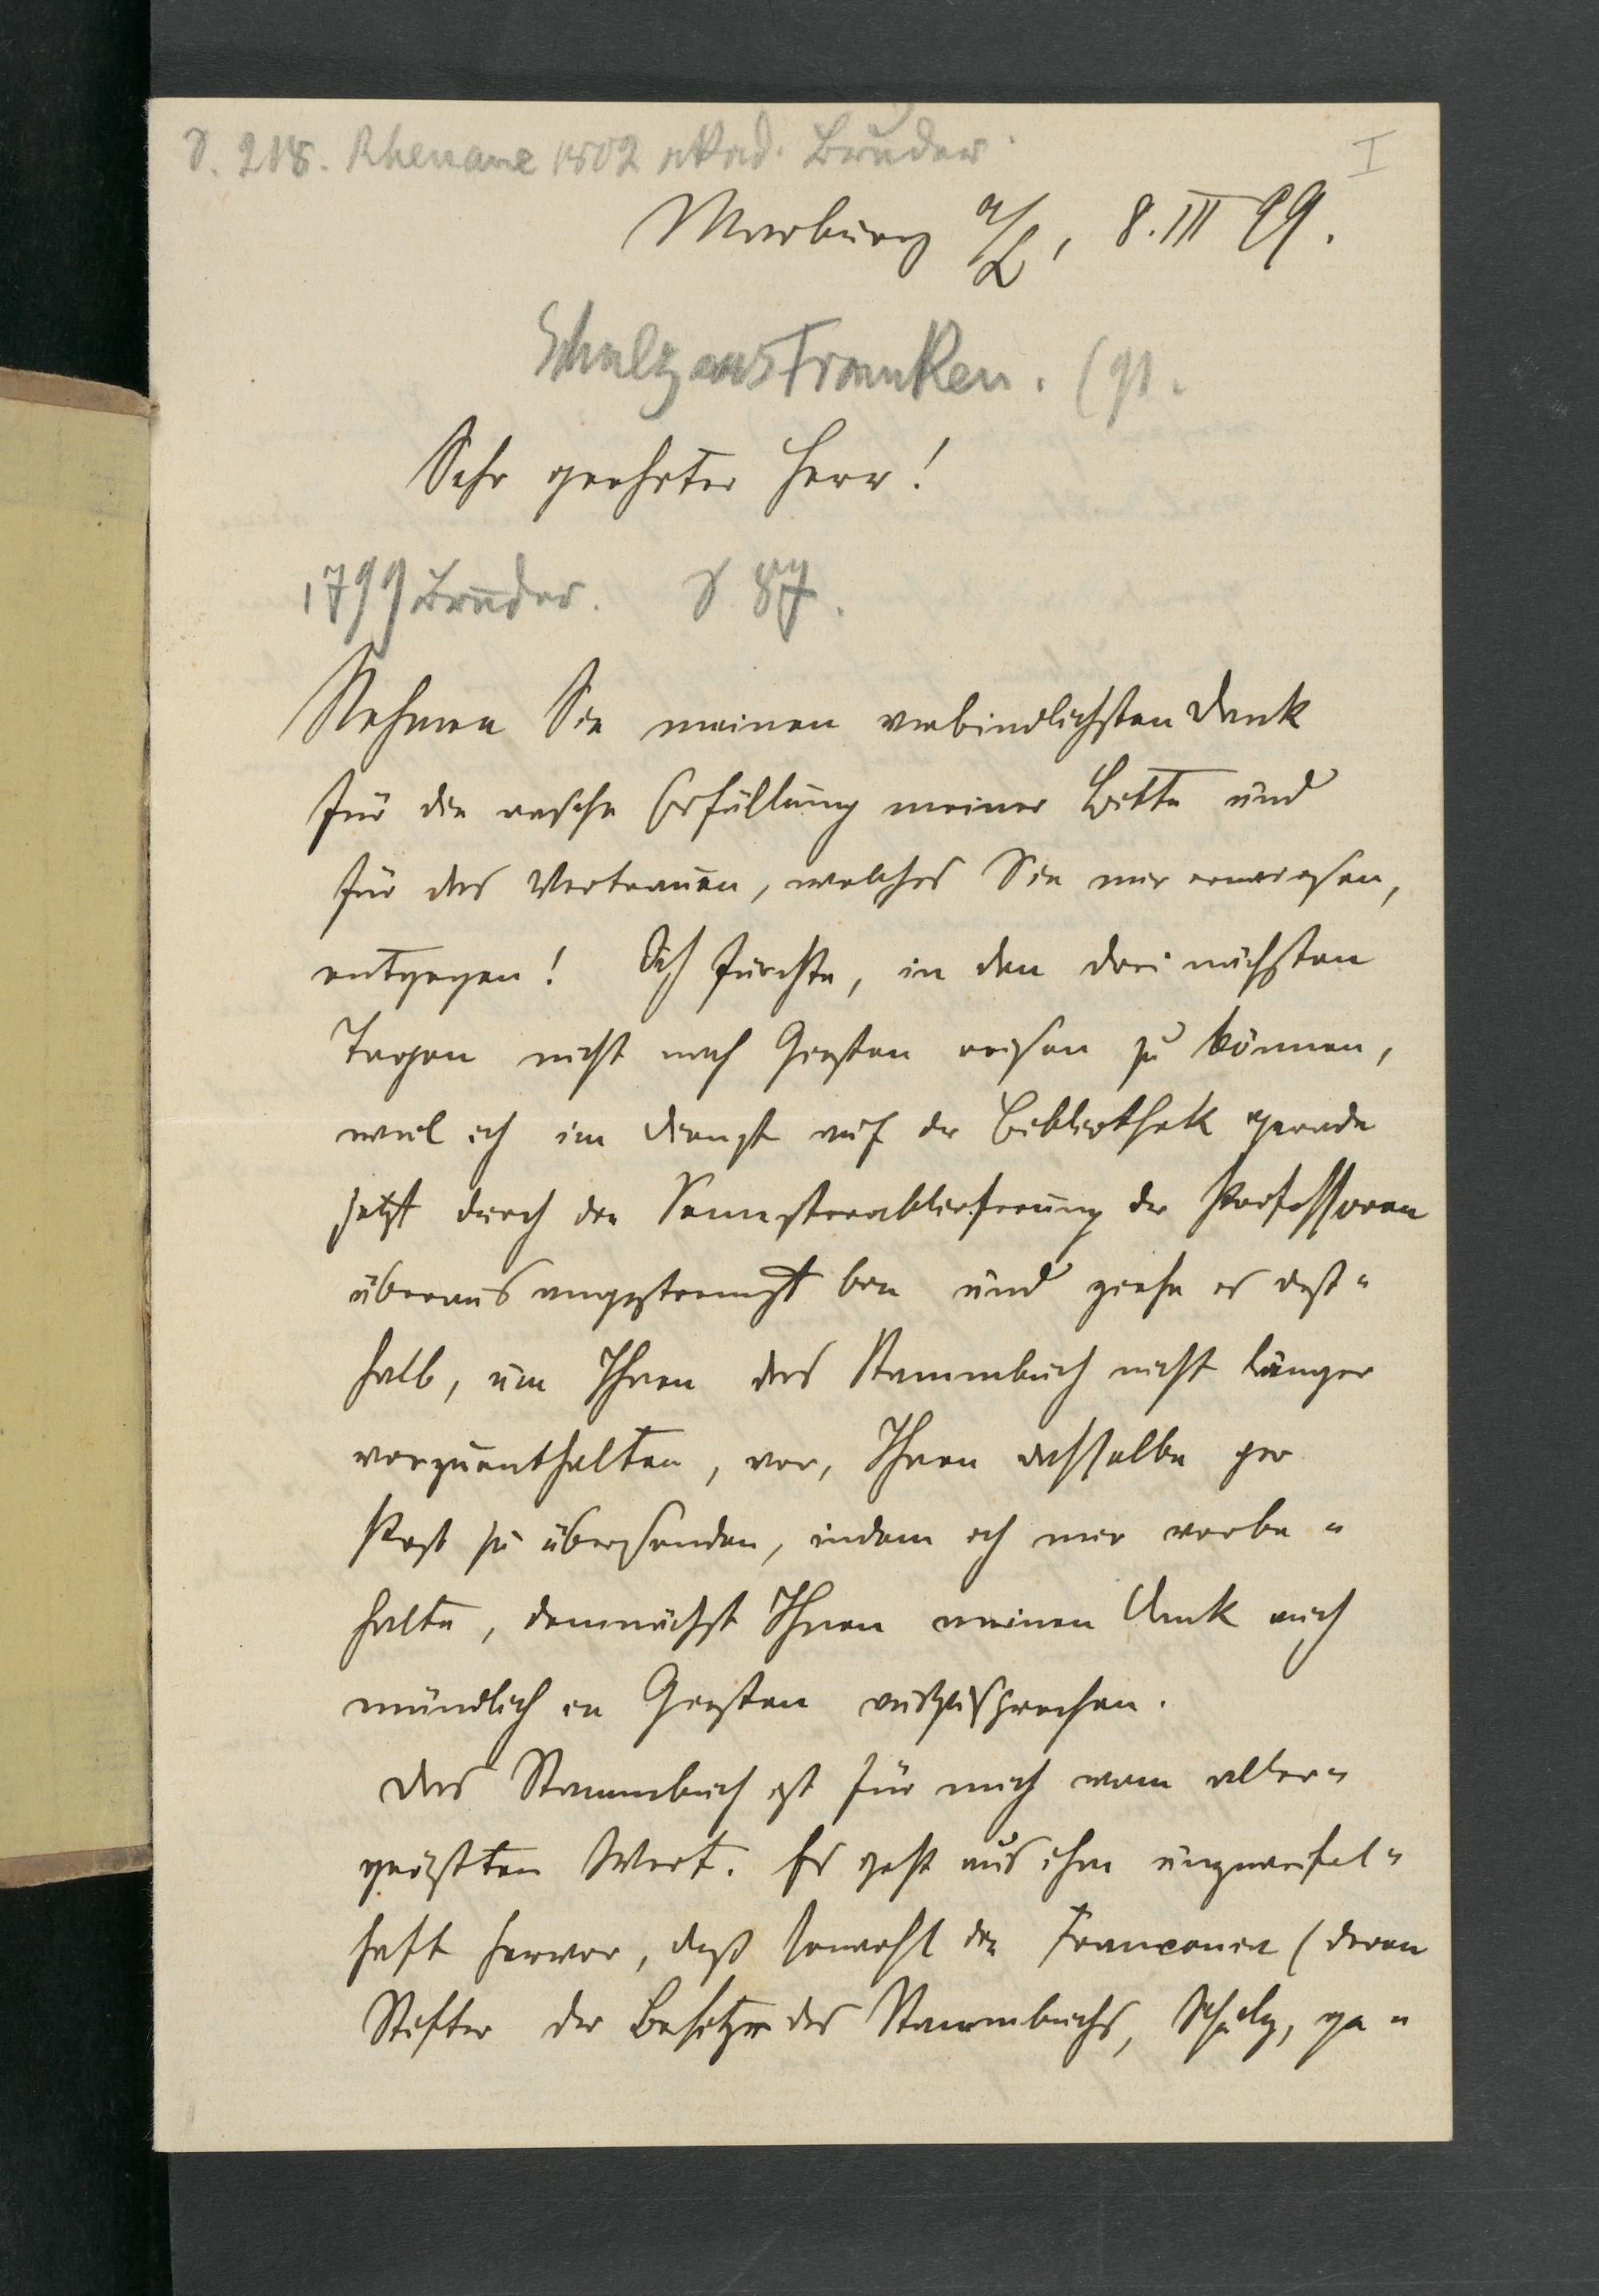 S. 218. Rhenane 1802 akad. Bruder.
I
Marburg a/L, 8. III 99.
Schulz aus Franken. (91.
Sehr geehrter Herr!
1799 Bruder. S 87.
Nehmen Sie meinen verbindlichsten Dank
für die rasche Erfüllung meiner Bitte und
für das Vertrauen, welches Sie mir erwiesen,
entgegen! Ich fürchte, in den drei nächsten
Tagen nicht nach Giessen reisen zu können,
weil ich im Dienst auf der Bibliothek gerade
jetzt durch die Semesterablieferung der Professoren
überaus angestrengt bin und ziehe es dess-
halb, um Ihnen das Stammbuch nicht länger
vorzuenthalten, vor, Ihnen dasselbe per
Post zu übersenden, indem ich mir vorbe-
halte, demnächst Ihnen meinen Dank auch
mündlich in Giessen auszusprechen.
Das Stammbuch ist für mich vom aller-
grössten Wert. Es geht aus ihm unzweifel-
haft hervor, daß sowohl die Franconia (deren
Stifter der Besitzer des Stammbuchs, Schulz, ge-